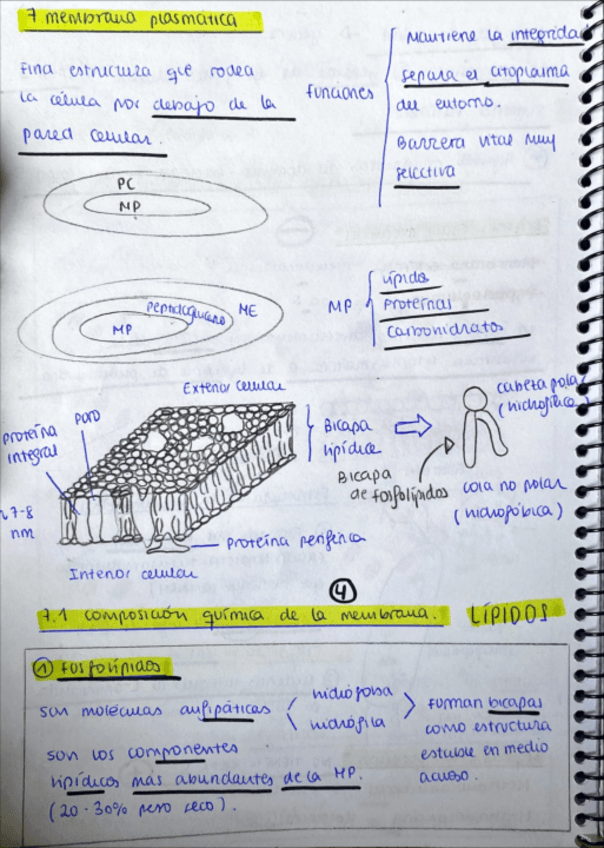 7 membrana plasmática
Fina estructura que rodea
la célula por debajo de la
pared celular.
funciones
Mantiene la integridad
separa el citoplasma
del entorno.
Barrera vital muy
selectiva
PC
MP
MP
Peptidoglucano
ME
MP
Lípidos
Proteínas
Carbohidratos
Exterior celular
proteína
integral
poro
7-8
nm
Interior celular
Proteína periférica
Bicapa
lipídica
Bicapa
de fosfolípidos
cabeza polar
(hidrofílica)
cola no polar
(hidrofóbica)
4
7.1 composición química de la membrana. LÍPIDOS
1 fosfolípidos
son moléculas anfipáticas
hidrófoba
hidrófila
forman bicapas
como estructura
estable en medio
acuoso.
son los componentes
lipídicos más abundantes de la MP.
(20-30% peso seco).